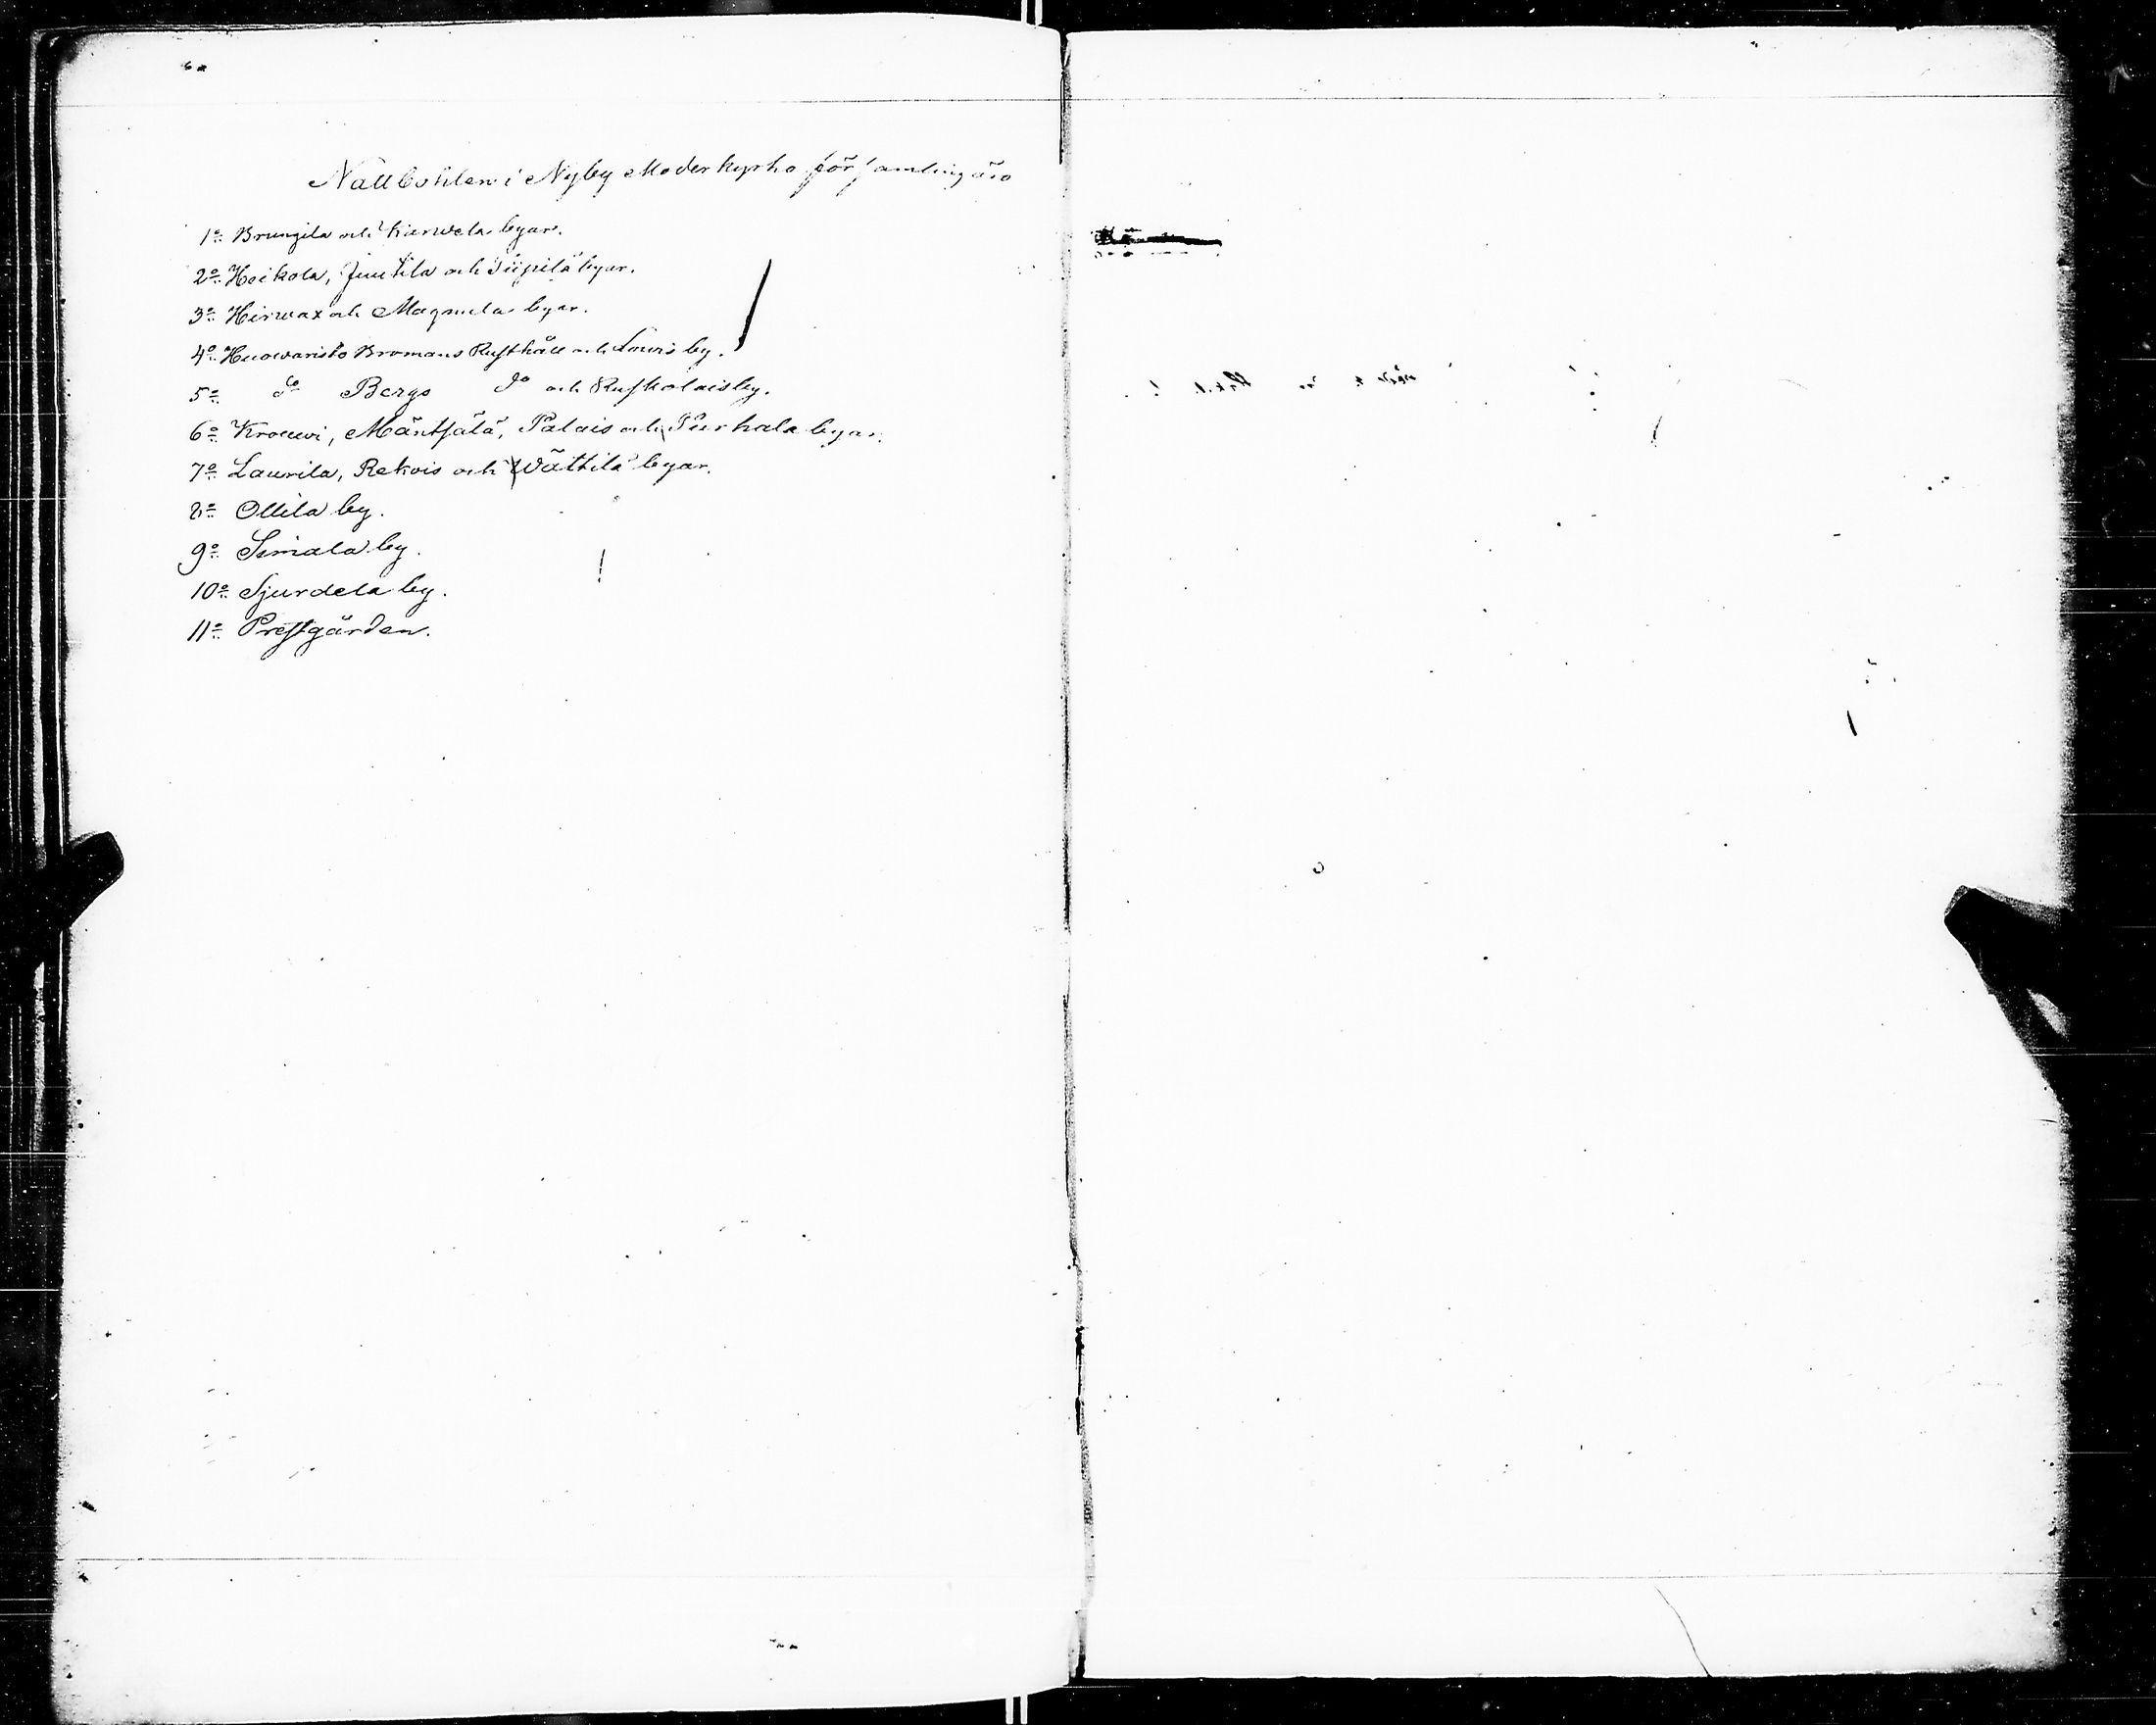 Nattbohlen i Nyby Moderkyrko församling äro
1o Brungila och Karwela byar.
2o Heikola, Juutila och Siipilä byar.
3o Hirwax och Magnula byar.
4o Huowaristo Bromans Rusthåll och Louvis by.
5o do Bergs do och Ruskolais by.
6o Krouwi, Mäntsälä, Palais och Purhala byar.
7o Laurila, Rekois och Wättilä byar.
8o Ollila by.
9o Simala by.
10o Sjurdela by.
11o Prestgården.